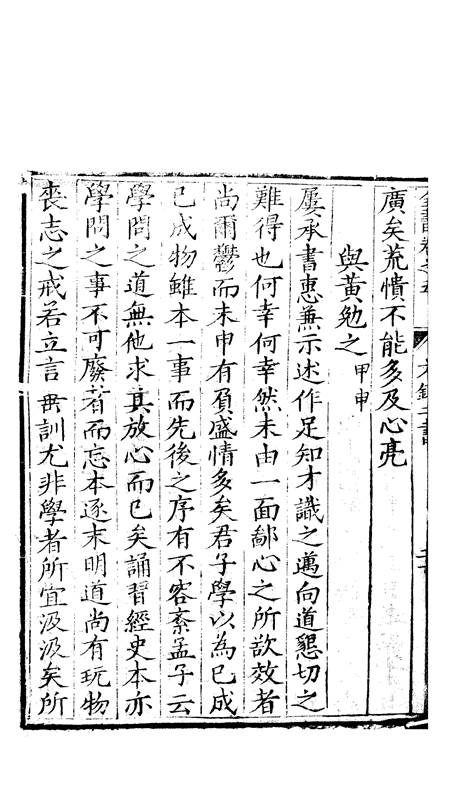 廣矣荒憒不能多及心亮
與黃勉之 甲申
屢承書惠兼示述作足知才識之邁向道懇切之
難得也何幸何幸然未由一面鄙心之所欲效者
尚爾鬱而未申有負盛情多矣君子學以為己成
己成物雖本一事而先後之序有不容紊孟子云
學問之道無他求其放心而已矣誦習經史本亦
學問之事不可廢者而忘本逐末明道尚有玩物
喪志之戒若立言垂訓尤非學者所宜汲汲矣所